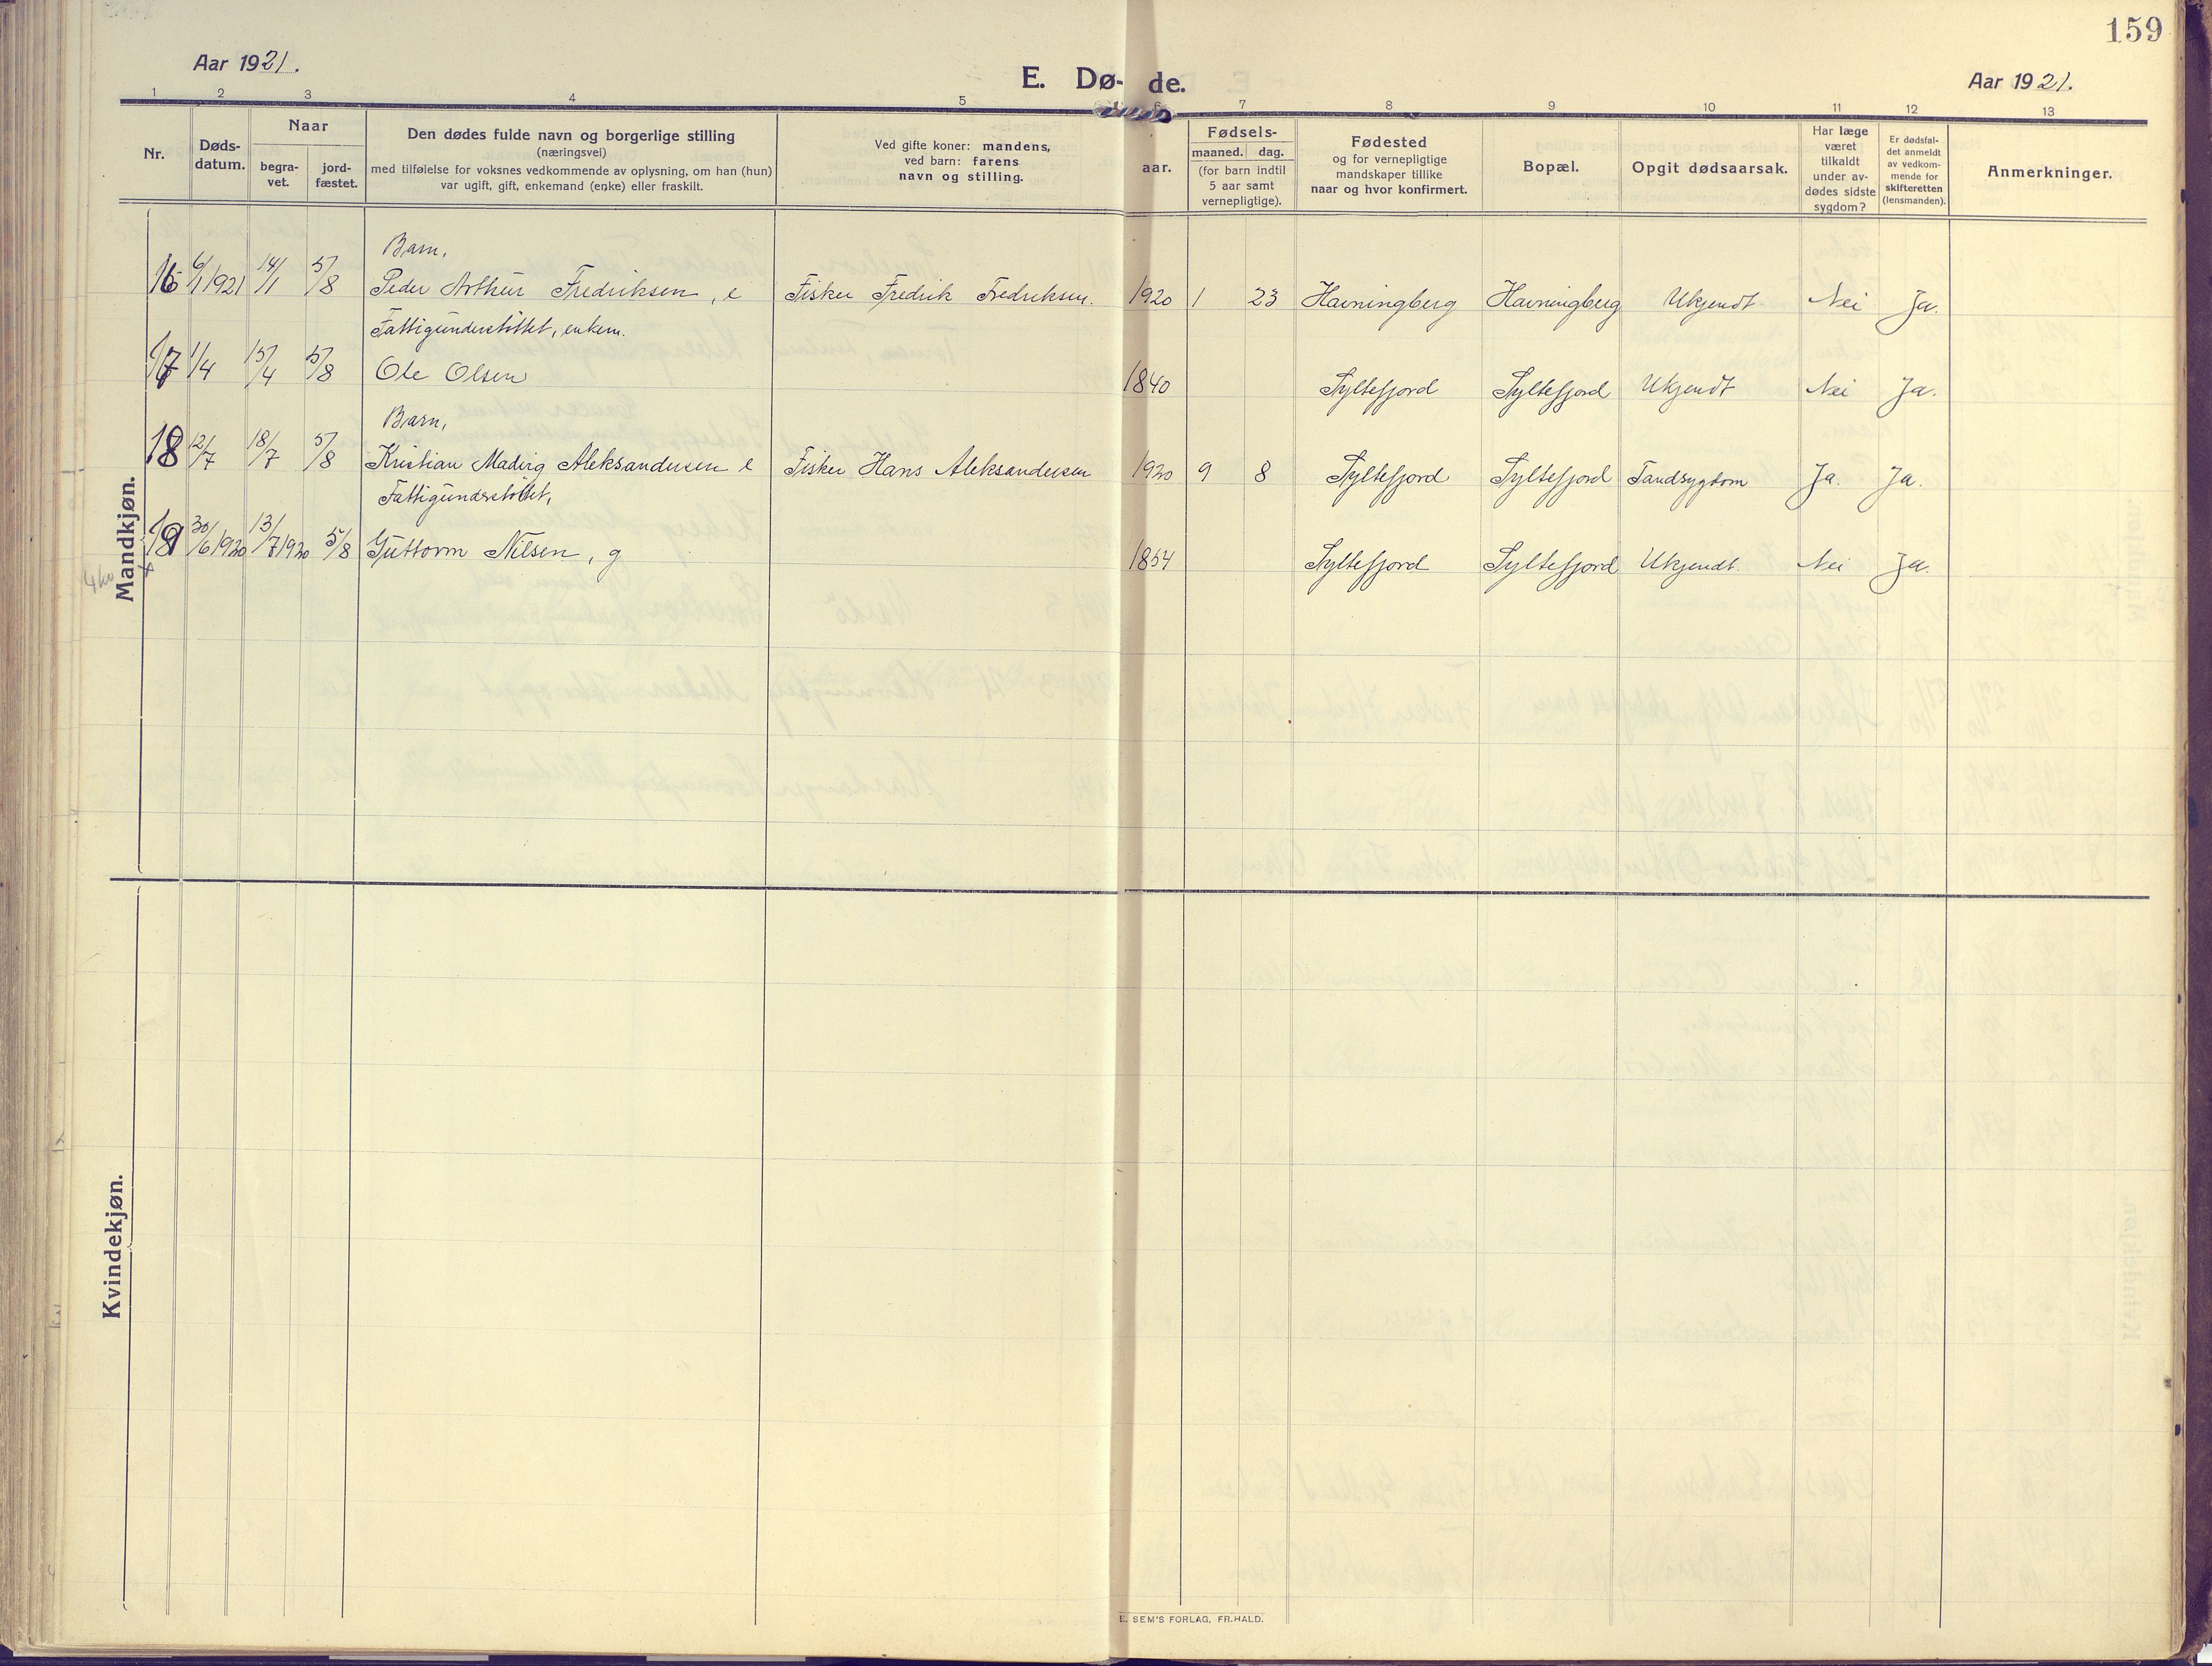 159
Aar 1921.
E. Dø- de.
Aar 1921.
1 2 3 4 5 6 7 8 9 10 11 12 13
Nr.
Døds-
datum.
Naar
begra-
vet.
jord-
fæstet.
Den dødes fulde navn og borgerlige stilling
(næringsvei)
med tilføielse for voksnes vedkommende av oplysning, om han (hun)
var ugift, gift, enkemand (enke) eller fraskilt.
Ved gifte koner: mandens,
ved barn: farens
navn og stilling.
aar.
Fødsels-
maaned. dag.
(for barn indtil
5 aar samt
vernepligtige).
Fødested
og for vernepligtige
mandskaper tillike
naar og hvor konfirmert.
Bopæl.
Opgit dødsaarsak.
Har læge
været
tilkaldt
under av-
dødes sidste
sygdom?
Er dødsfal-
det anmeldt
av vedkom-
mende for
skifteretten
(lensmanden).
Anmerkninger.
Mandkjøn.
Barn,
16 6/1 1921 14/1 5/8 Peder Arthur Fredriksen, e Fisker Fredrik Fredriksen. 1920 1 23 Havningberg Havningberg Ukjendt Nei Ja.
Fattigunderstöttet, enkem.
17 1/4 15/4 5/8 Ole Olsen 1840 Syltefjord Syltefjord Ukjendt Nei Ja.
Barn,
18 12/7 18/7 5/8 Kristian Madvig Aleksandersen e Fisker Hans Aleksandersen 1920 9 8 Syltefjord Syltefjord Tandsygdom Ja. Ja.
Fattigunderstöttet,
19 30/6 1920 13/7 1920 5/8 Guttorm Nilsen, g 1854 Syltefjord Syltefjord Ukjendt. Nei Ja.
Kvindekjøn.
E. SEM'S FORLAG, FR. HALD.